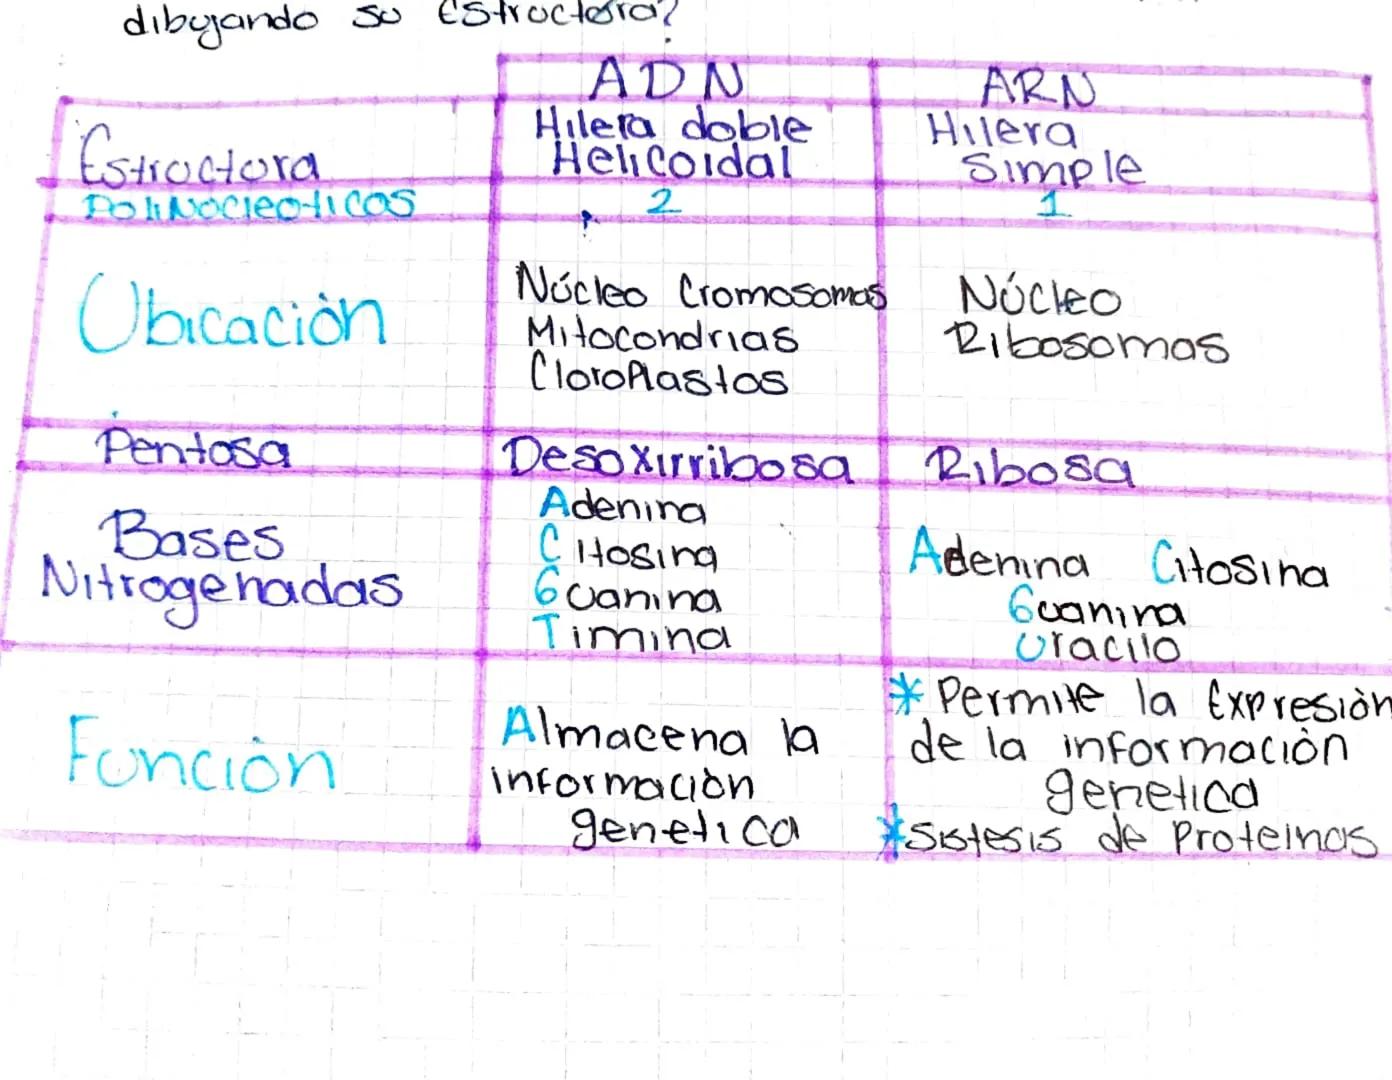 dibujando su Estructura?
ADN ARN
Estructura Hilera doble Helicoidal Hilera Simple
Polinucleoticos 2 1
Ubicación Núcleo Cromosomas Mitocondrias Cloroplastos Núcleo Ribosomas
Pentosa Desoxirribosa Ribosa
Bases Nitrogenadas Adenina Citosina Guanina Timina Adenina Citosina Guanina Uracilo
Función Almacena la información genetica * Permite la Expresión de la información genetica
* Sistesis de Proteinas